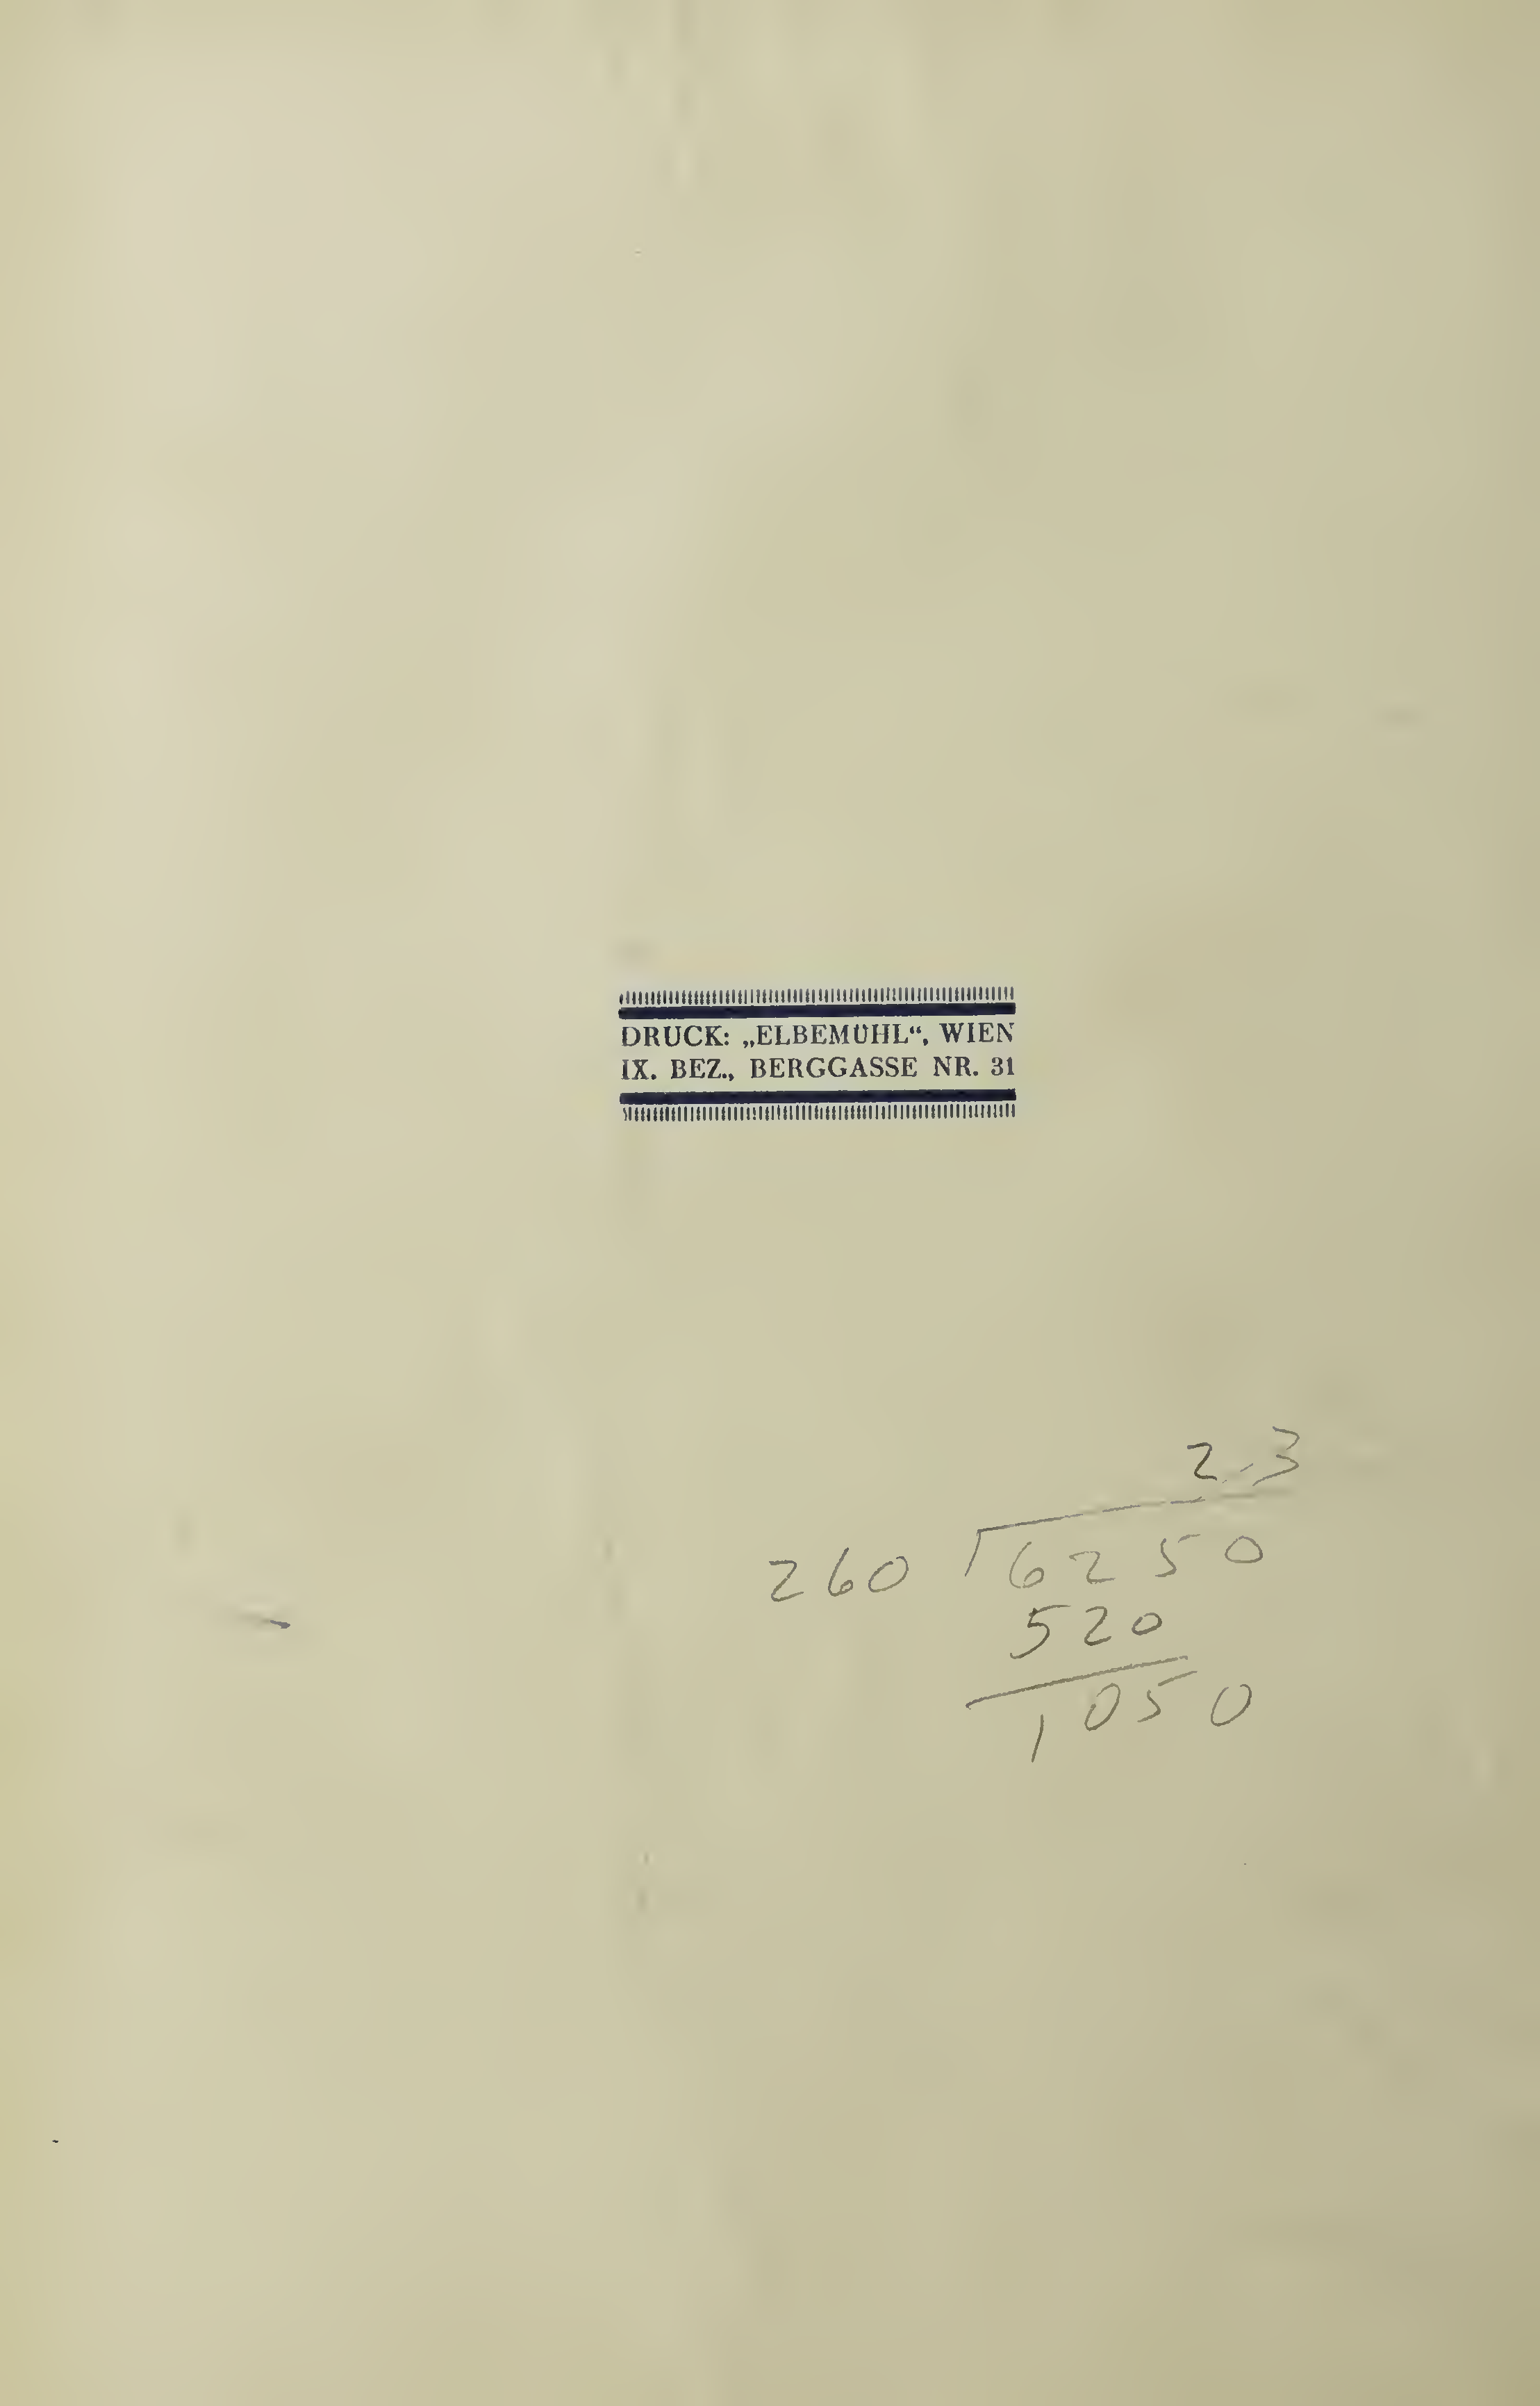 DRUCK: „ELBEMÜHL“, WIEN
IX. BEZ., BERGGASSE NR. 31
2.3
260 6250
520
1050